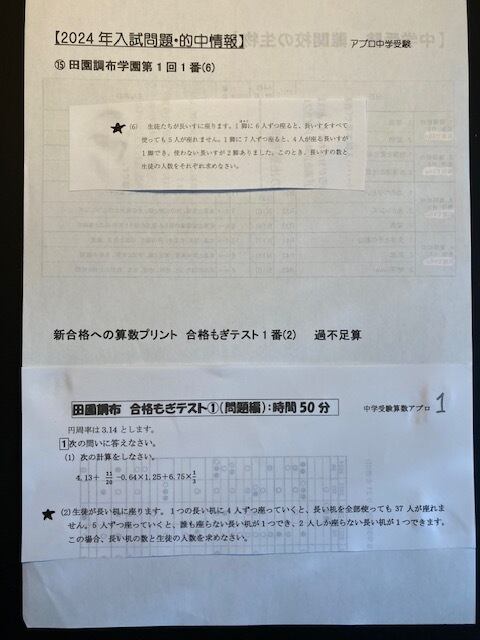 【2024年入試問題・的中情報】
アプロ中学受験
⑮田園調布学園第1回1番(6)
★(6) 生徒たちが長いすに座ります。1脚に6人ずつ座ると、長いすをすべて
使っても5人が座れません。1脚に7人ずつ座ると、4人が座る長いすが
1脚でき、使わない長いすが2脚ありました。このとき、長いすの数と
生徒の人数をそれぞれ求めなさい。
新合格への算数プリント 合格もぎテスト1番(2) 過不足算
田園調布 合格もぎテスト①(問題編):時間50分
中学受験算数アプロ 1
円周率は3.14とします。
1 次の問いに答えなさい。
(1) 次の計算をしなさい。
4.13+11/20-0.64×1.25+6.75×1/3
★(2)生徒が長い机に座ります。1つの長い机に4人ずつ座っていくと、長い机を全部使っても37人が座れま
せん。5人ずつ座っていくと、誰も座らない長い机が1つでき、2人しか座らない長い机が1つできます。
この場合、長い机の数と生徒の人数を求めなさい。